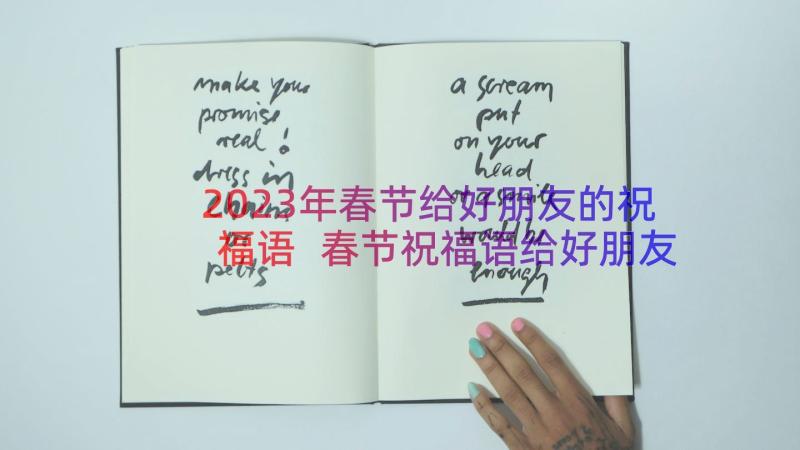 make your
promise
real!
dress in
or
pelts
a scream
put
on your
head
or a smile
would be
enough
2023年春节给好朋友的祝
福语 春节祝福语给好朋友